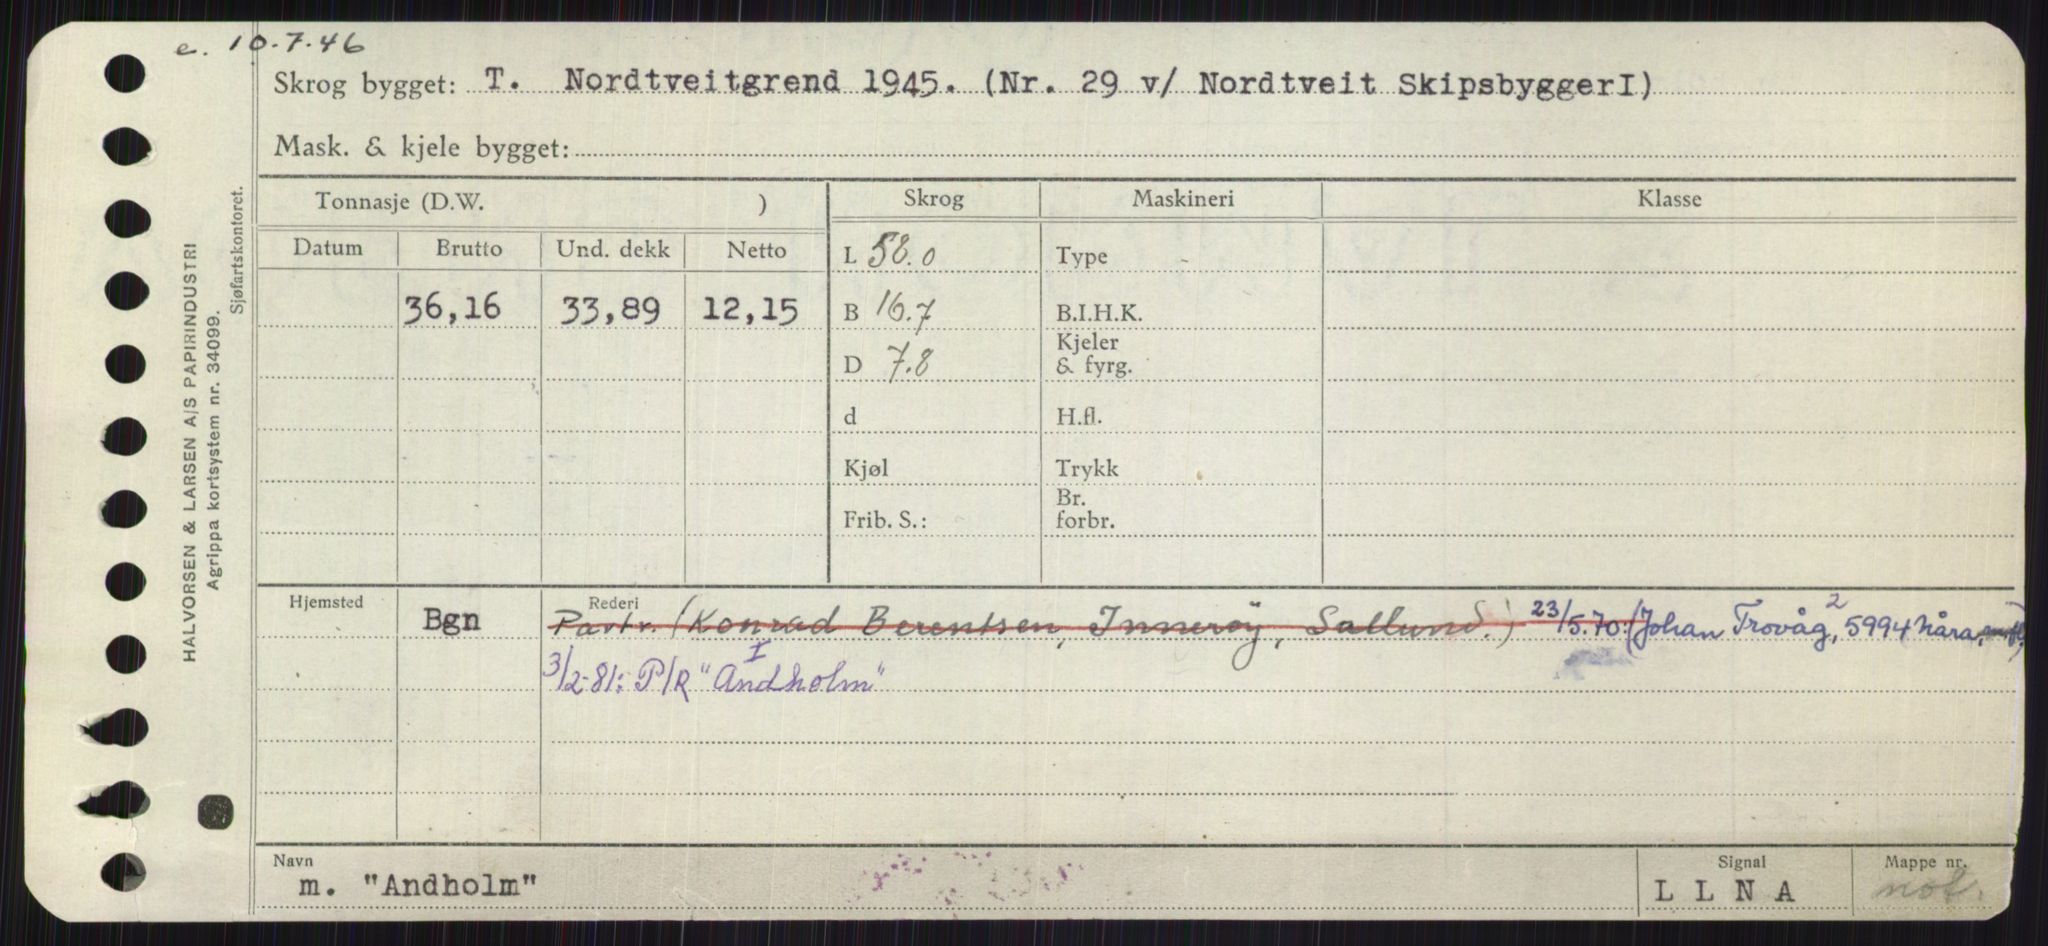 e. 10.7.46
Skrog bygget: T. Nordtveitgrend 1945. (Nr. 29 v/ Nordtveit SkipsbyggerI)
Mask. & kjele bygget:
Tonnasje (D.W. )
Skrog
Maskineri
Klasse
Datum Brutto Und. dekk Netto
L 58.0
Type
36,16 33,89 12,15
B 16.7
B.I.H.K.
D 7.8
Kjeler
& fyrg.
d
H.fl.
Kjøl
Trykk
Frib. S.:
Br.
forbr.
Hjemsted
Bgn
Rederi
Partr. (Konrad Berentsen, Innerøy, Sallund.) 23/5.70: (Johan Trovåg, 2 5994 Nåra,
3/2-81: P/R "Andholm I"
Navn
m. "Andholm"
Signal
L L N A
Mappe nr.
not.
HALVORSEN & LARSEN A/S PAPIRINDUSTRI
Agrippa kortsystem nr. 34099.
Sjøfartskontoret.